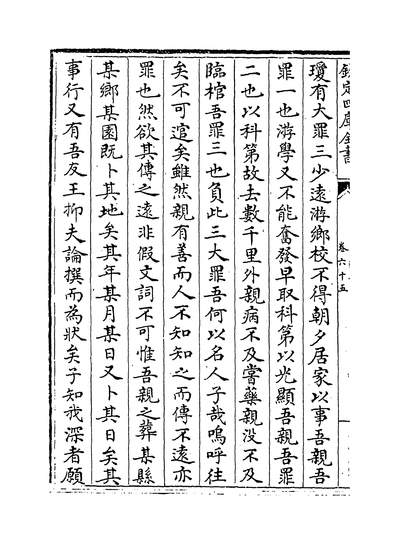 欽定四庫全書
卷六十五
瓊有大罪三少遠游鄉校不得朝夕居家以事吾親吾
罪一也游學又不能奮發早取科第以光顯吾親吾罪
二也以科第故去數千里外親病不及嘗藥親没不及
臨棺吾罪三也負此三大罪吾何以名人子哉嗚呼往
矣不可逭矣雖然親有善而人不知知之而傳不遠亦
罪也然欲其傳之遠非假文詞不可惟吾親之葬某縣
某鄉某園既卜其地矣其年某月某日又卜其日矣其
事行又有吾友王抑夫論撰而為狀矣子知我深者願